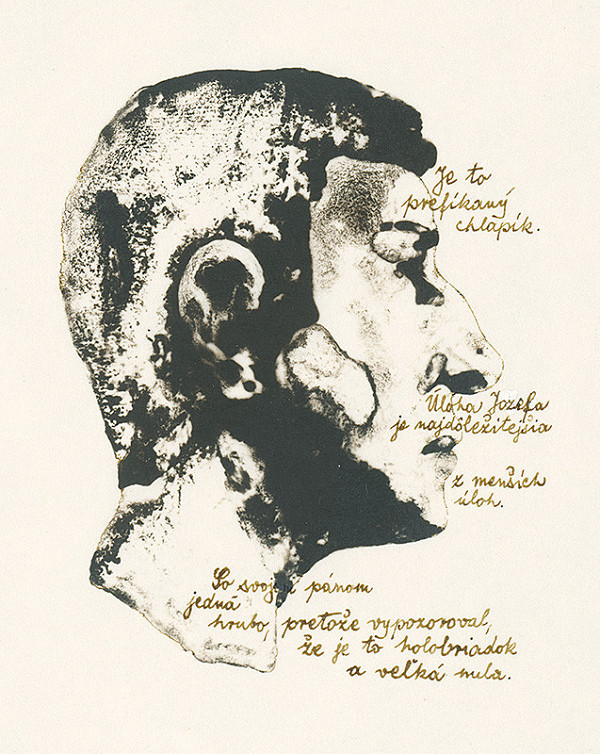 Je to
prefíkaný
chlapík.
Úloha Jozefa
je najdôležitejšia
z menších
úloh.
So svojím pánom
jedná
hrubo, pretože vypozoroval,
že je to holobriadok
a veľká nula.